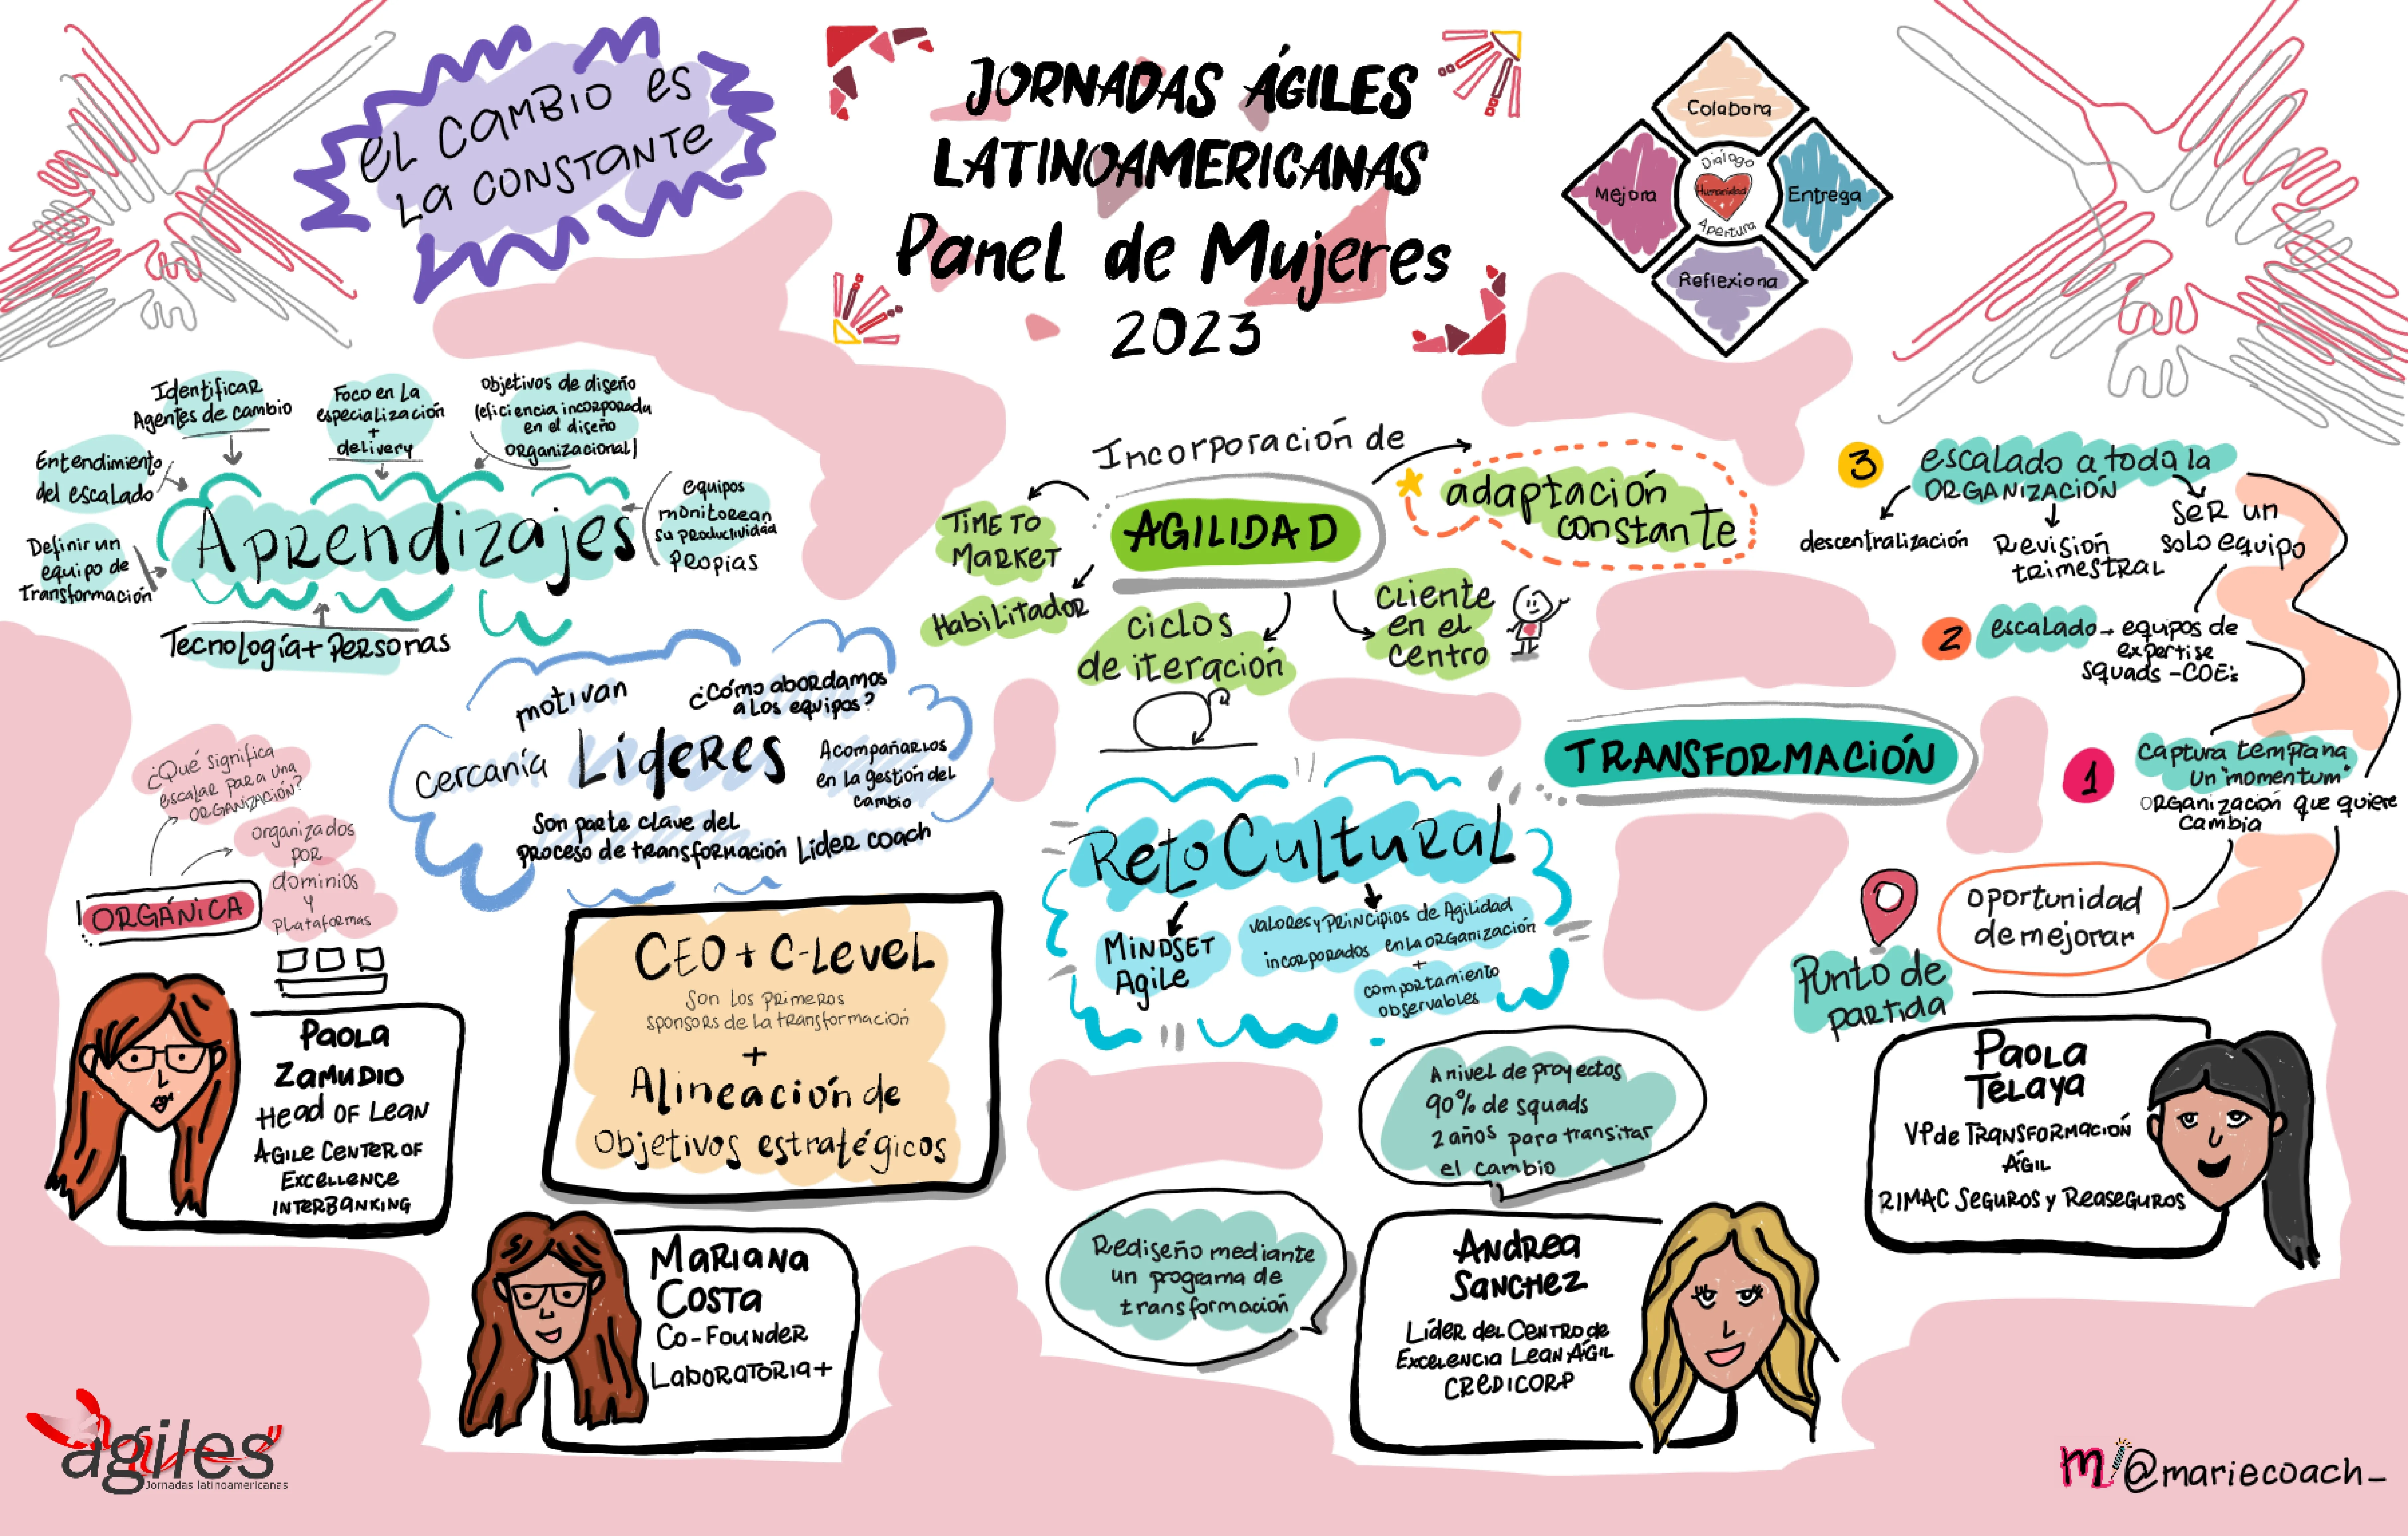 el cambio es
la constante
JORNADAS ÁGILES
LATINOAMERICANAS
Panel de Mujeres
2023
Colabora
Mejora
Diálogo
Humanidad
Apertura
Entrega
Reflexiona
Identificar
Agentes de cambio
Foco en La
especialización
+
delivery
objetivos de diseño
(eficiencia incorporada
en el diseño
organizacional)
Entendimiento
del escalado
Definir un
equipo de
Transformación
Aprendizajes
equipos
monitorean
su productividad
propias
Tecnología + Personas
Incorporación de
AGILIDAD
adaptación
constante
TIME TO
MARKET
Habilitador
ciclos
de iteración
cliente
en el
centro
3
escalado a toda la
ORGANIZACIÓN
descentralización
Revisión
trimestral
ser un
solo equipo
2
escalado → equipos de
expertise
squads - COEs
TRANSFORMACIÓN
1
captura temprana
un "momentum"
organización que quiere
cambia
oportunidad
de mejorar
Punto de
partida
motivan
¿Cómo abordamos
a los equipos?
cercanía
Líderes
Acompañarlos
en la gestión del
cambio
Son parte clave del
proceso de transformación
Líder coach
¿Qué significa
escalar para una
organización?
organizados
por
dominios
y
plataformas
ORGÁNICA
Reto Cultural
MINDSET
Agile
valores y principios de Agilidad
incorporados en la organización
+
comportamiento
observables
CEO + C-Level
Son los primeros
sponsors de la transformación
+
Alineación de
Objetivos estratégicos
Paola
Zamudio
Head of Lean
Agile Center of
Excellence
Interbanking
Mariana
Costa
Co-Founder
Laboratoria+
A nivel de proyectos
90% de squads
2 años para transitar
el cambio
Rediseño mediante
un programa de
transformación
Andrea
Sanchez
Líder del Centro de
Excelencia Lean Ágil
CREDICORP
Paola
Telaya
VP de Transformación
Ágil
RIMAC Seguros y Reaseguros
ágiles
Jornadas latinoamericanas
m @mariecoach_